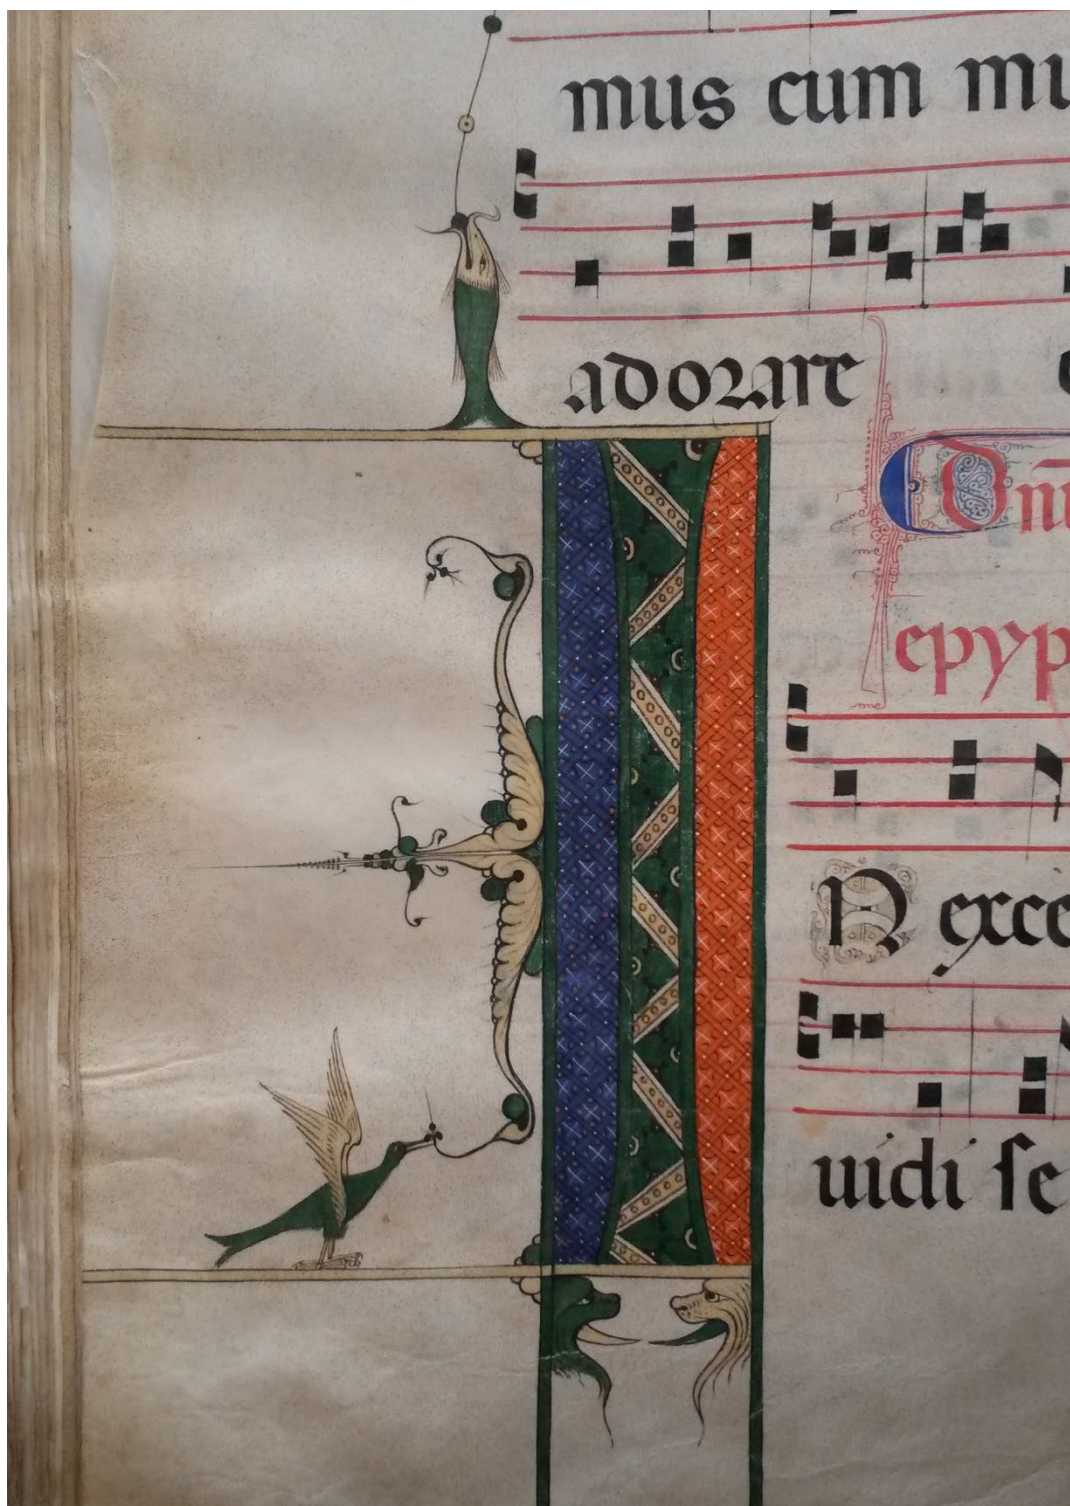 mus cum mu
adorare
Dn̄i
epyp
N exce
uidi se